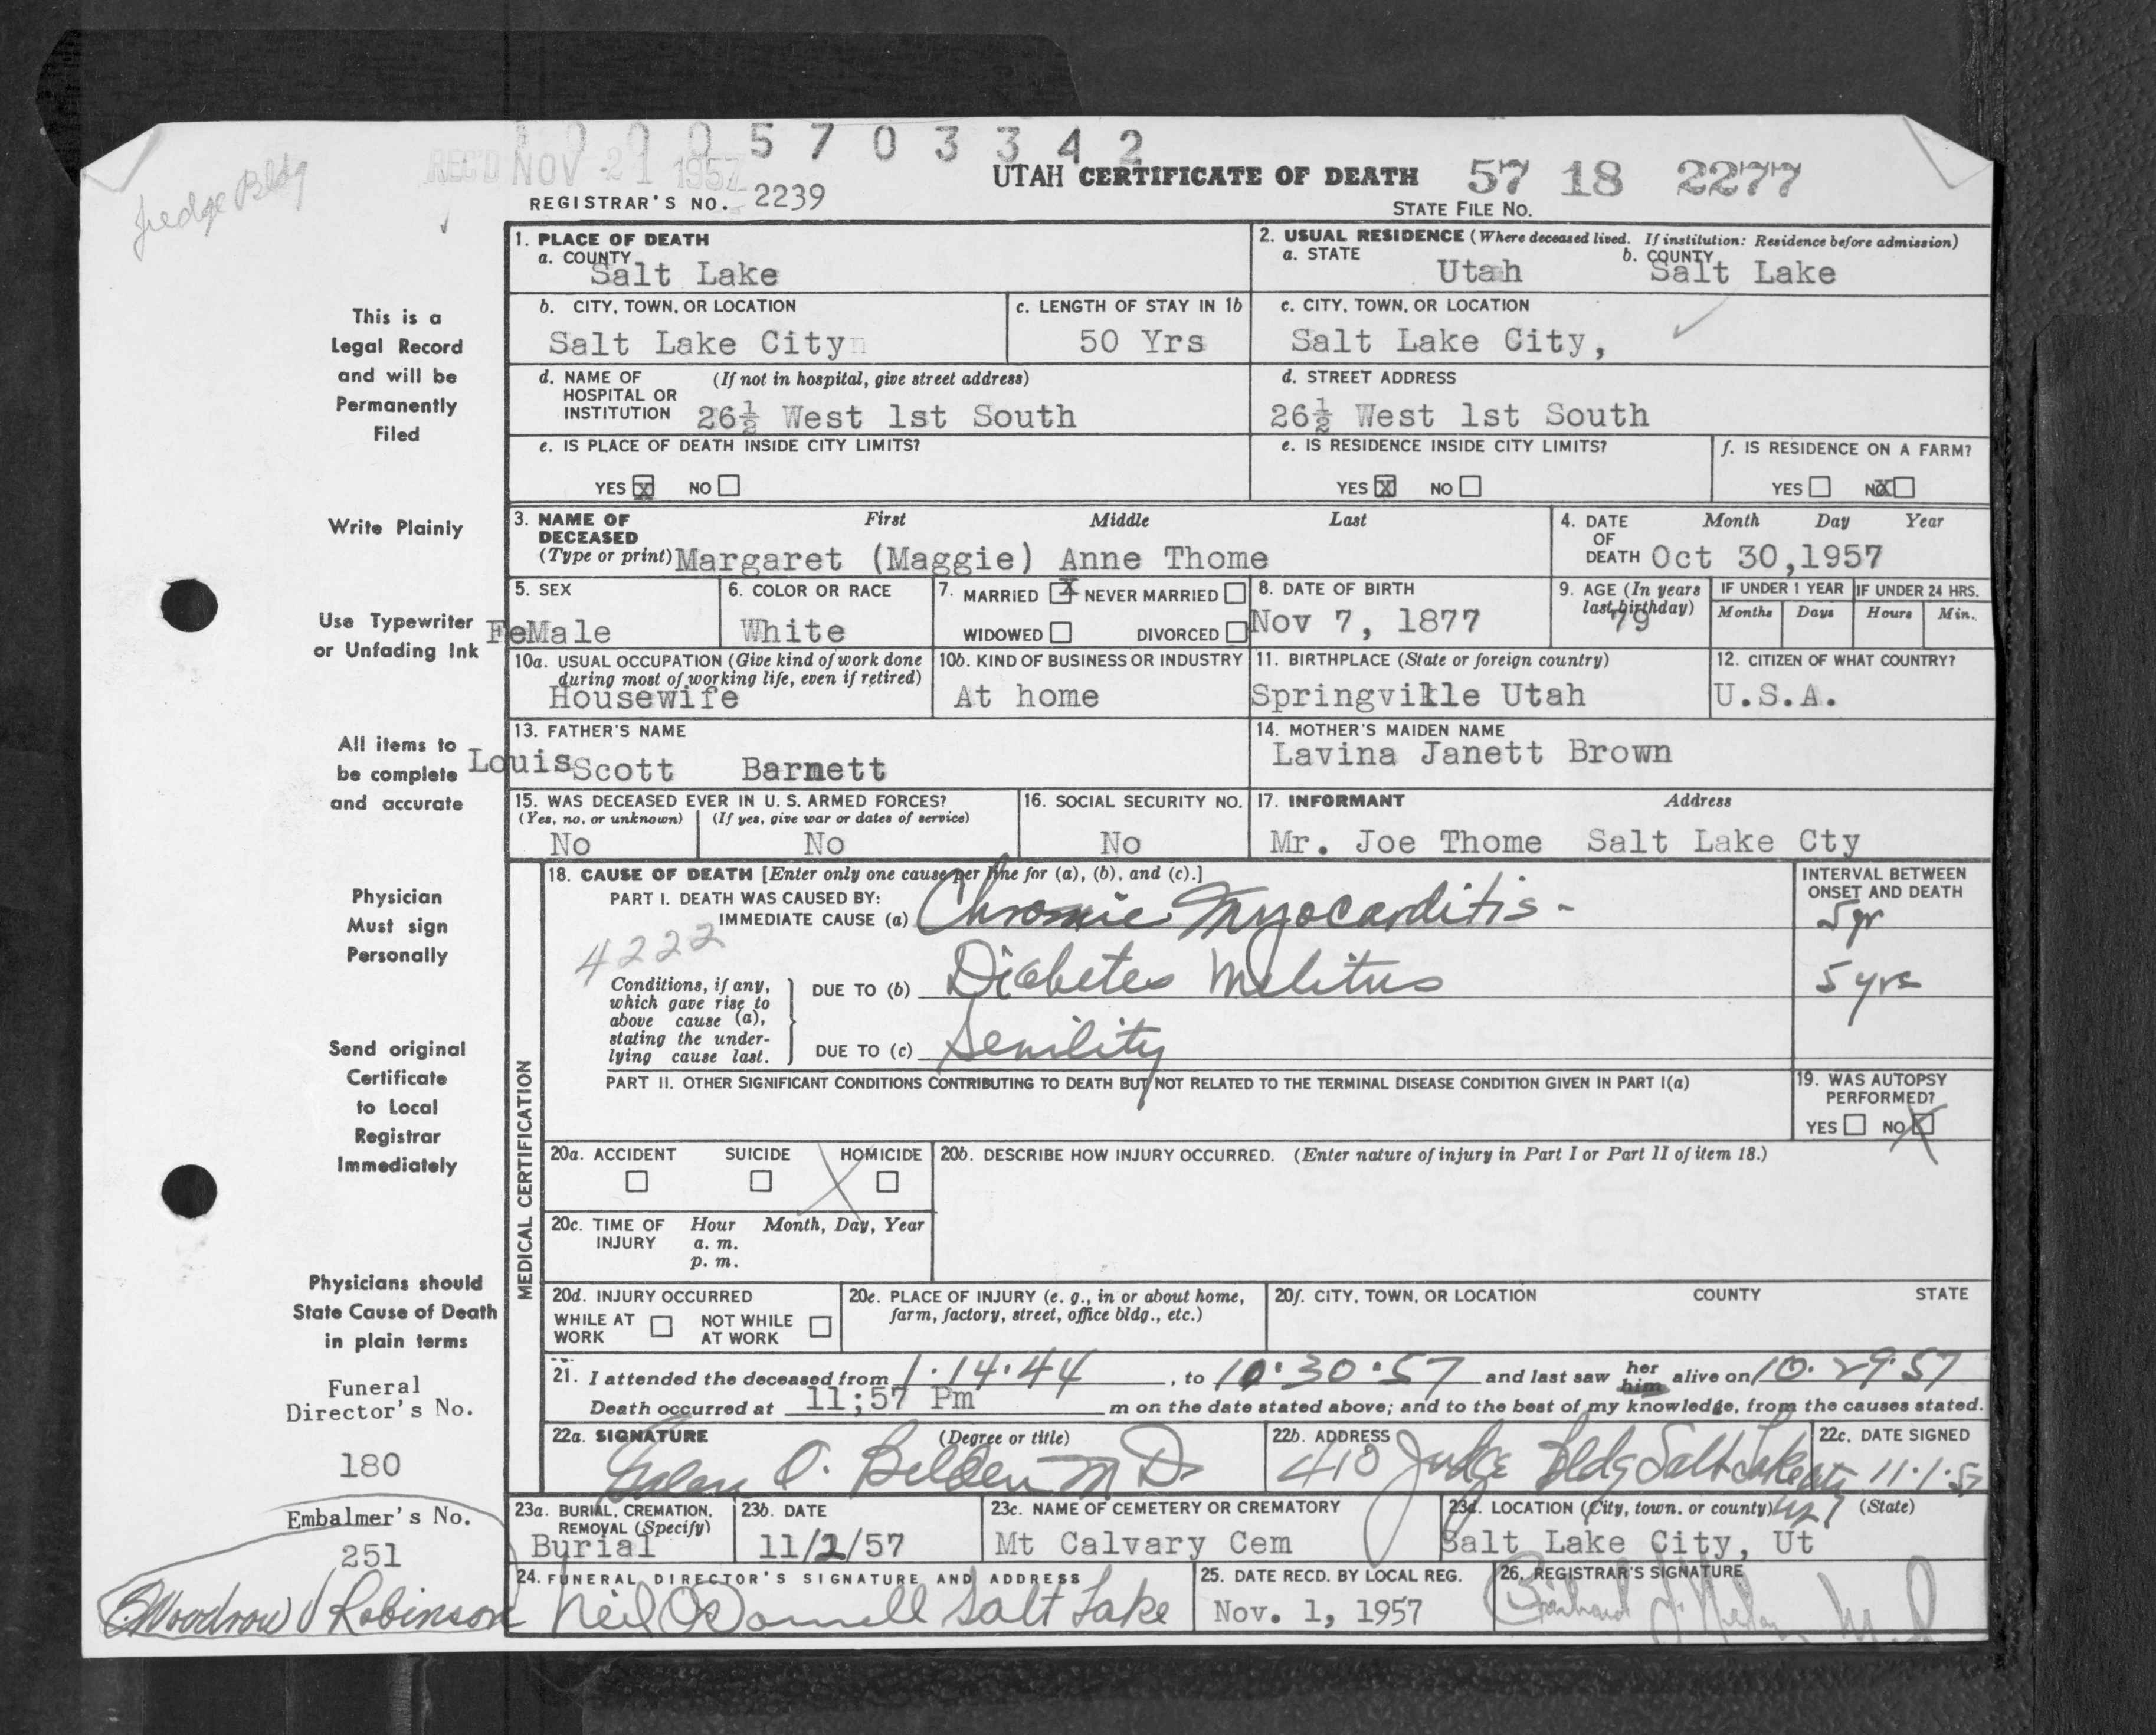 0 0 0 5 7 0 3 3 4 2
Judge Bldg
REC'D NOV 21 1957
UTAH CERTIFICATE OF DEATH 57 18 2277
REGISTRAR'S NO. 2239
STATE FILE NO.
1. PLACE OF DEATH
a. COUNTY
Salt Lake
2. USUAL RESIDENCE (Where deceased lived. If institution: Residence before admission)
a. STATE Utah b. COUNTY Salt Lake
b. CITY, TOWN, OR LOCATION
Salt Lake City
c. LENGTH OF STAY IN 1b
50 Yrs
c. CITY, TOWN, OR LOCATION
Salt Lake City,
d. NAME OF HOSPITAL OR INSTITUTION (If not in hospital, give street address)
26½ West 1st South
d. STREET ADDRESS
26½ West 1st South
e. IS PLACE OF DEATH INSIDE CITY LIMITS?
YES X NO
e. IS RESIDENCE INSIDE CITY LIMITS?
YES X NO
f. IS RESIDENCE ON A FARM?
YES NO X
3. NAME OF DECEASED (Type or print) First Middle Last
Margaret (Maggie) Anne Thome
4. DATE OF DEATH Month Day Year
Oct 30,1957
5. SEX
FeMale
6. COLOR OR RACE
White
7. MARRIED X NEVER MARRIED
WIDOWED DIVORCED
8. DATE OF BIRTH
Nov 7, 1877
9. AGE (In years last birthday)
79
IF UNDER 1 YEAR
Months Days
IF UNDER 24 HRS.
Hours Min.
10a. USUAL OCCUPATION (Give kind of work done during most of working life, even if retired)
Housewife
10b. KIND OF BUSINESS OR INDUSTRY
At home
11. BIRTHPLACE (State or foreign country)
Springville Utah
12. CITIZEN OF WHAT COUNTRY?
U.S.A.
13. FATHER'S NAME
Louis Scott Barnett
14. MOTHER'S MAIDEN NAME
Lavina Janett Brown
15. WAS DECEASED EVER IN U. S. ARMED FORCES?
(Yes, no, or unknown) (If yes, give war or dates of service)
No No
16. SOCIAL SECURITY NO.
No
17. INFORMANT Address
Mr. Joe Thome Salt Lake Cty
MEDICAL CERTIFICATION
18. CAUSE OF DEATH [Enter only one cause per line for (a), (b), and (c).]
PART I. DEATH WAS CAUSED BY:
IMMEDIATE CAUSE (a) Chronic Myocarditis -
INTERVAL BETWEEN ONSET AND DEATH
5 yr
4222
Conditions, if any, which gave rise to above cause (a), stating the underlying cause last.
DUE TO (b) Diabetes Melitus
5 yrs
DUE TO (c) Senility
PART II. OTHER SIGNIFICANT CONDITIONS CONTRIBUTING TO DEATH BUT NOT RELATED TO THE TERMINAL DISEASE CONDITION GIVEN IN PART I(a)
19. WAS AUTOPSY PERFORMED?
YES NO X
20a. ACCIDENT SUICIDE HOMICIDE
20b. DESCRIBE HOW INJURY OCCURRED. (Enter nature of injury in Part I or Part II of item 18.)
20c. TIME OF INJURY Hour Month, Day, Year
a. m.
p. m.
20d. INJURY OCCURRED
WHILE AT WORK NOT WHILE AT WORK
20e. PLACE OF INJURY (e. g., in or about home, farm, factory, street, office bldg., etc.)
20f. CITY, TOWN, OR LOCATION COUNTY STATE
21. I attended the deceased from 1·14·44, to 10·30·57 and last saw her him alive on 10·29·57
Death occurred at 11;57 Pm m on the date stated above; and to the best of my knowledge, from the causes stated.
22a. SIGNATURE (Degree or title)
Galen O. Belden M D
22b. ADDRESS
410 Judge Bldg Salt Lake
22c. DATE SIGNED
11·1·57
23a. BURIAL, CREMATION, REMOVAL (Specify)
Burial
23b. DATE
11/2/57
23c. NAME OF CEMETERY OR CREMATORY
Mt Calvary Cem
23d. LOCATION (City, town, or county) (State)
Salt Lake City, Ut
24. FUNERAL DIRECTOR'S SIGNATURE AND ADDRESS
Neil O'Donnell Salt Lake
25. DATE RECD. BY LOCAL REG.
Nov. 1, 1957
26. REGISTRAR'S SIGNATURE
This is a
Legal Record
and will be
Permanently
Filed
Write Plainly
Use Typewriter
or Unfading Ink
All items to
be complete
and accurate
Physician
Must sign
Personally
Send original
Certificate
to Local
Registrar
Immediately
Physicians should
State Cause of Death
in plain terms
Funeral
Director's No.
180
Embalmer's No.
251
Woodrow J Robinson